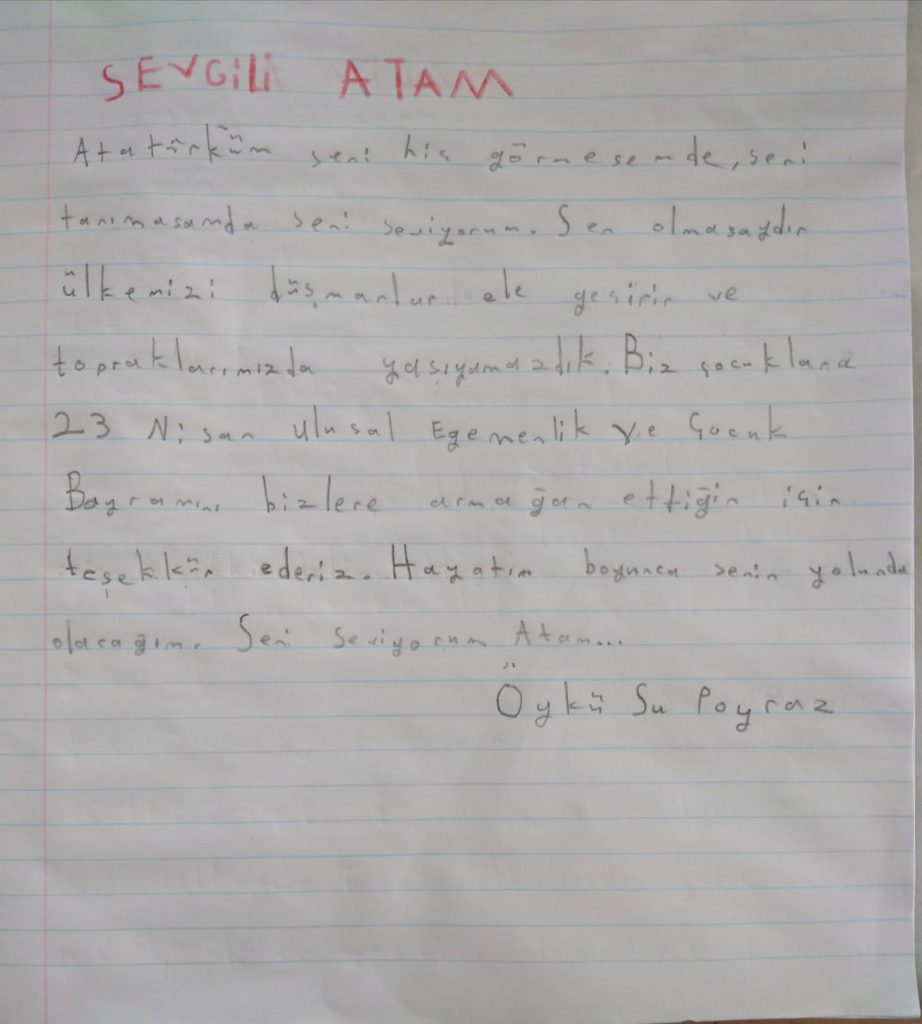 SEVGİLİ ATAM
Atatürküm seni hiç görmesemde, seni
tanımasamda seni seviyorum. Sen olmasaydın
ülkemizi düşmanlar ele geçirir ve
topraklarımızda yaşıyamazdık. Biz çocuklara
23 Nisan Ulusal Egemenlik ve Çocuk
Bayramını bizlere armağan ettiğin için
teşekkür ederiz. Hayatım boyunca senin yolunda
olacağım. Seni Seviyorum Atam...
Öykü Su Poyraz